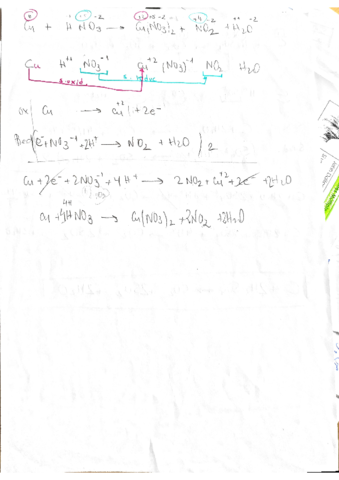 0 +1 +5 -2 +2 +5 -2 +4 -2 +1 -2
Cu + HNO3 → Cu(NO3)2 + NO2 + H2O
Cu H+1 NO3-1 Cu+2 (NO3)-1 NO2 H2O
s. oxid. s. reduc.
ox) Cu → Cu+2 + 2e-
(e- + NO3-1 + 2H+ → NO2 + H2O) 2
Cu + 2e- + 2NO3-1 + 4H+ → 2NO2 + Cu+2 + 2e- + 2H2O
Cu + 4HNO3 → Cu(NO3)2 + 2NO2 + 2H2O